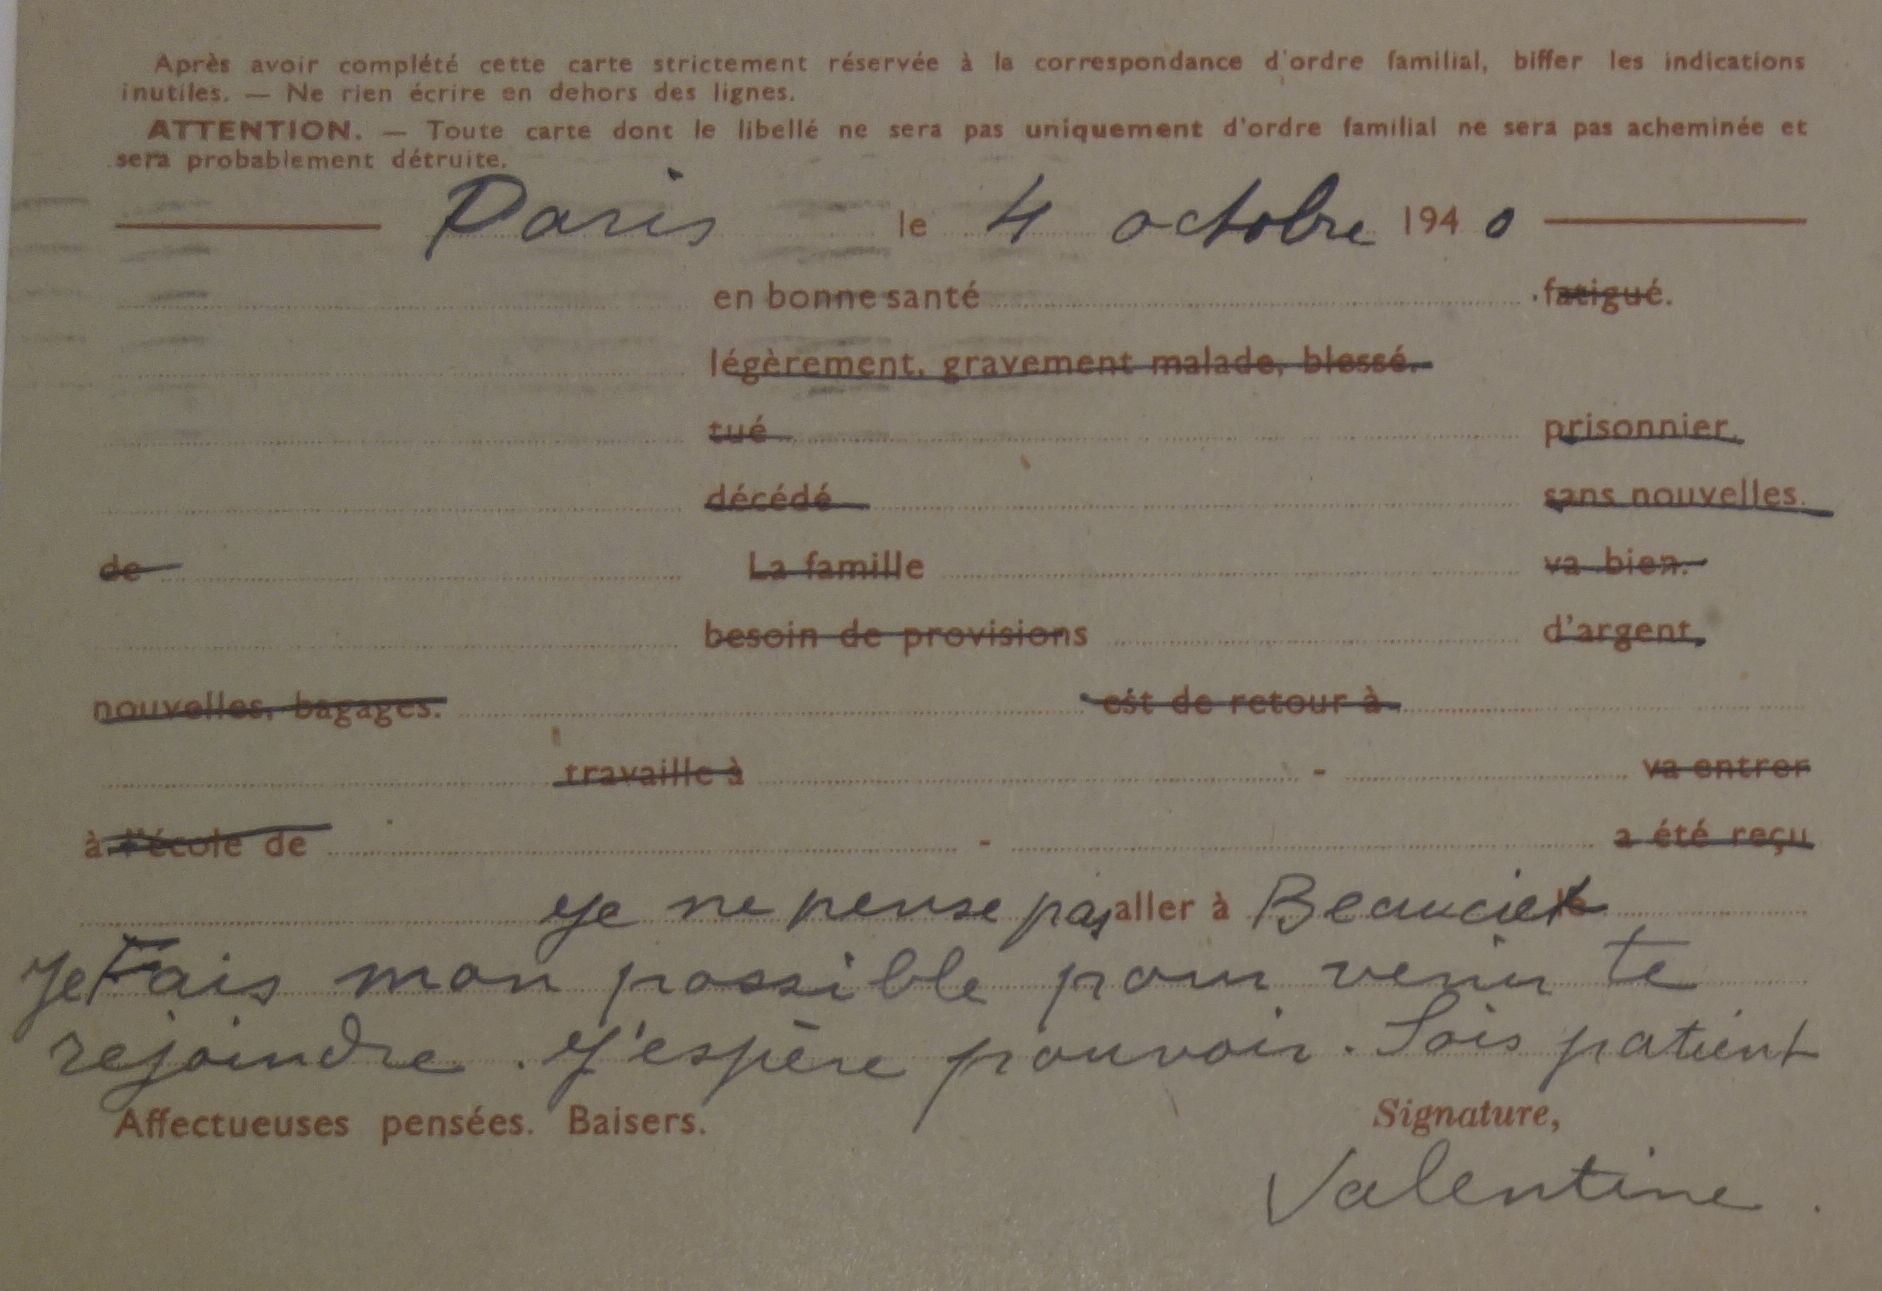 Après avoir complété cette carte strictement réservée à la correspondance d'ordre familial, biffer les indications
inutiles. — Ne rien écrire en dehors des lignes.
ATTENTION. — Toute carte dont le libellé ne sera pas uniquement d'ordre familial ne sera pas acheminée et
sera probablement détruite.
Paris le 4 octobre 1940
en bonne santé fatigué.
légèrement, gravement malade, blessé.
tué prisonnier.
décédé sans nouvelles.
de La famille va bien.
besoin de provisions d'argent.
nouvelles, bagages. est de retour à
travaille à - va entrer
à l'école de - a été reçu
Je ne pense pas aller à
Je Fais mon possible pour venir te
rejoindre. J'espère pouvoir. Sois patient
Affectueuses pensées. Baisers. Signature,
Valentine.